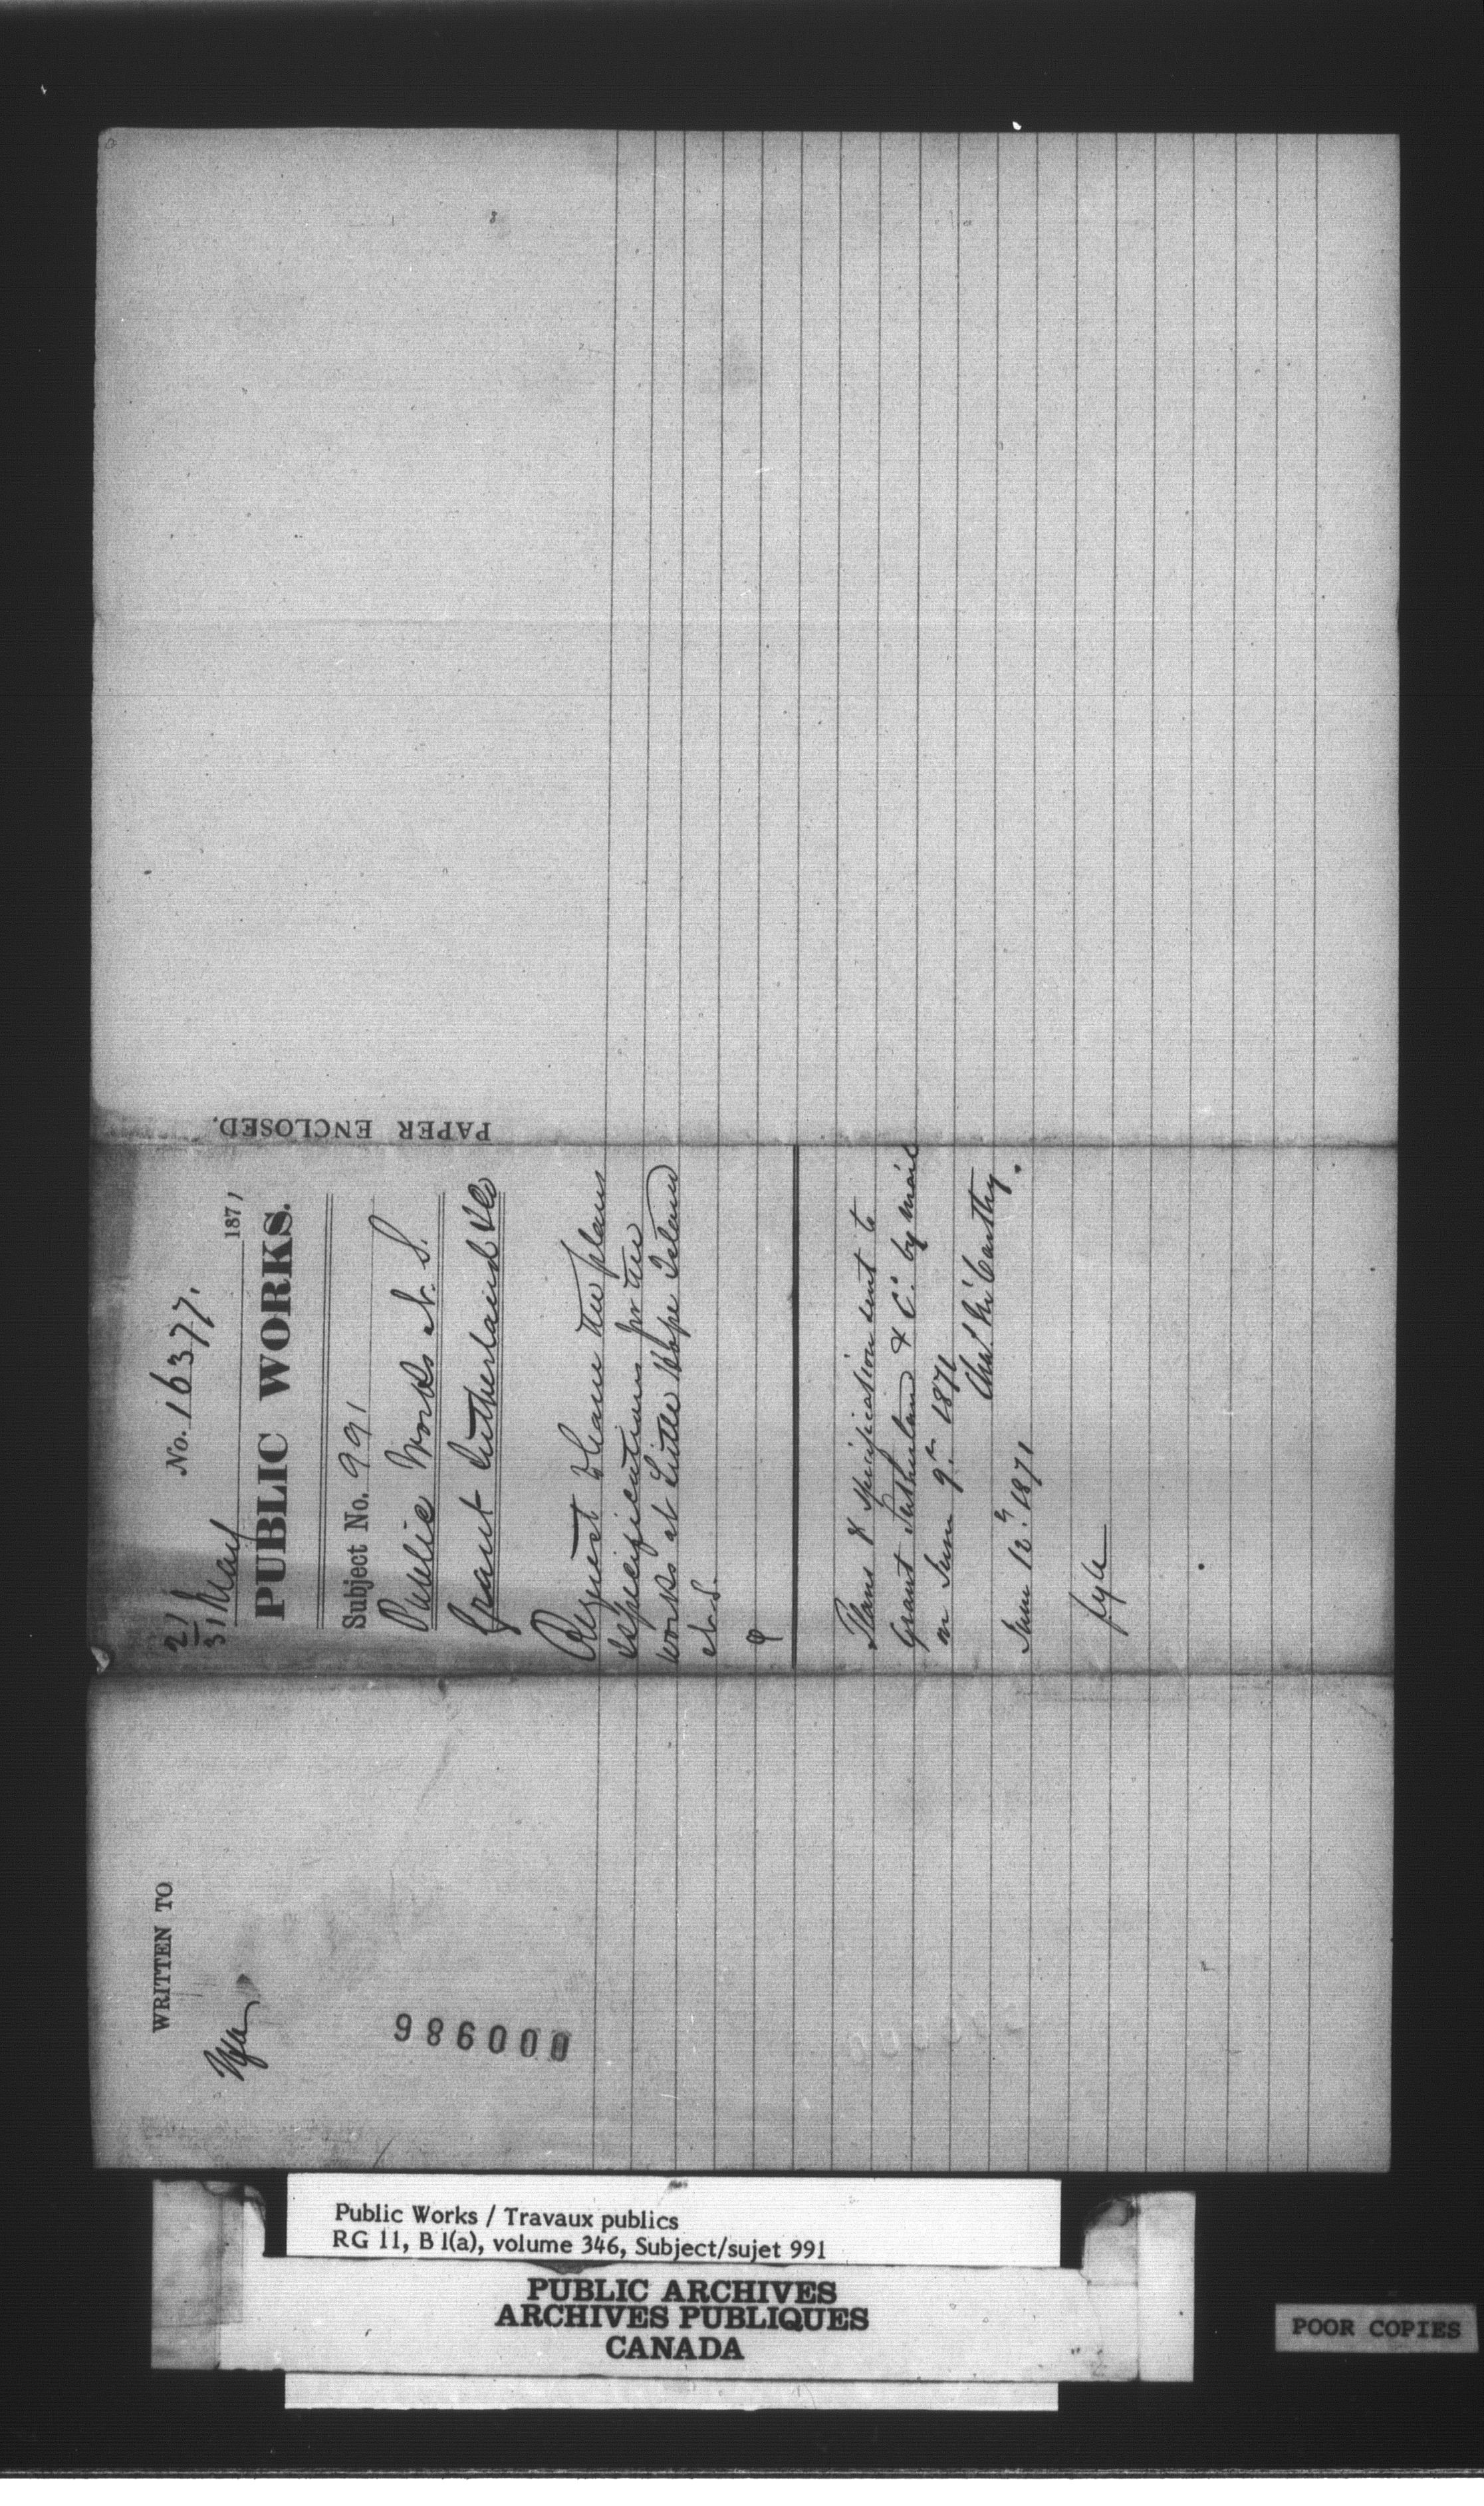 No. 16377.
21
31 May 1871
PUBLIC WORKS.
Subject No. 991
Public Works N. S.
Grant Sutherland & Co
Request to have the plans
& specifications for the
works at Little Hope Island
N.S.
Plans & specification sent to
Grant Sutherland & Co. by mail
on June 9th 1871
Chas McCarthy.
June 12th 1871
fyle
PAPER ENCLOSED.
WRITTEN TO
000986
Public Works / Travaux publics
RG 11, B 1(a), volume 346, Subject/sujet 991
PUBLIC ARCHIVES
ARCHIVES PUBLIQUES
CANADA
POOR COPIES